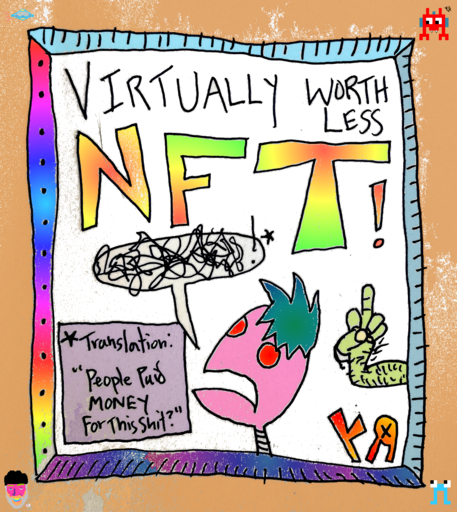 VIRTUALLY WORTH
LESS
NFT!
!*
*Translation:
"People Paid
MONEY
For This Shit?"